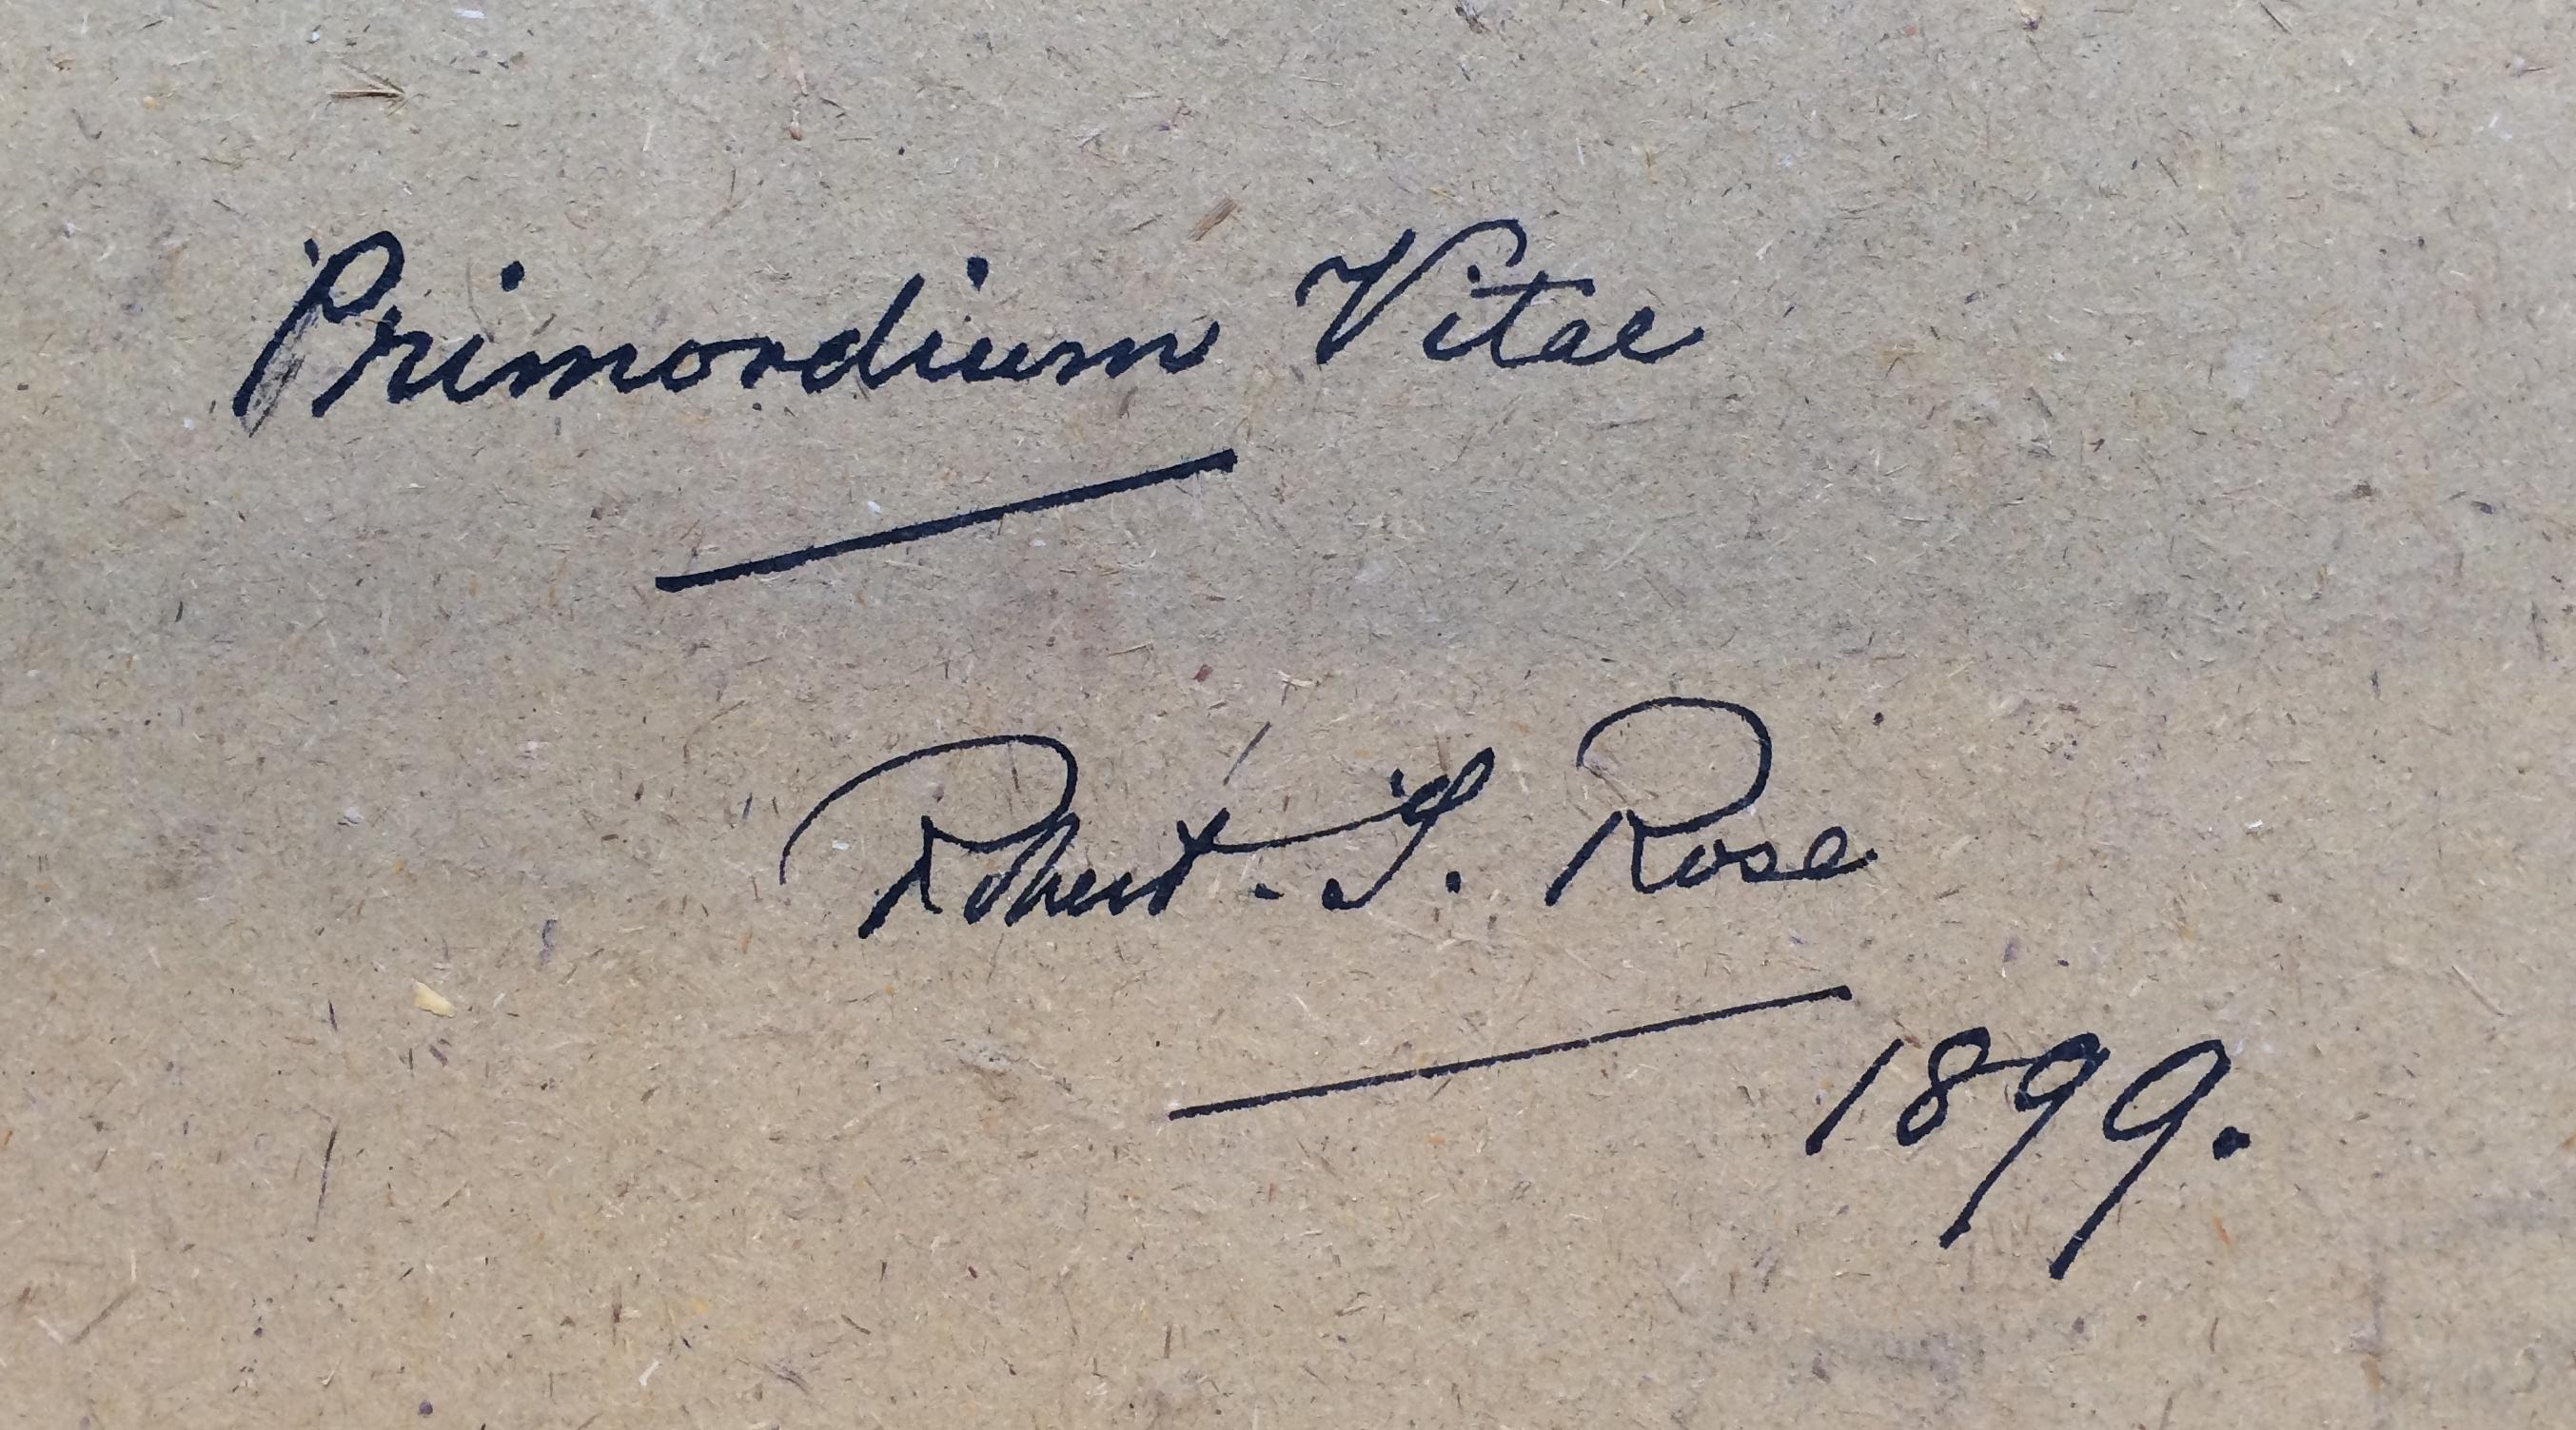 Primordium Vitae
Robert. Rose
1899.